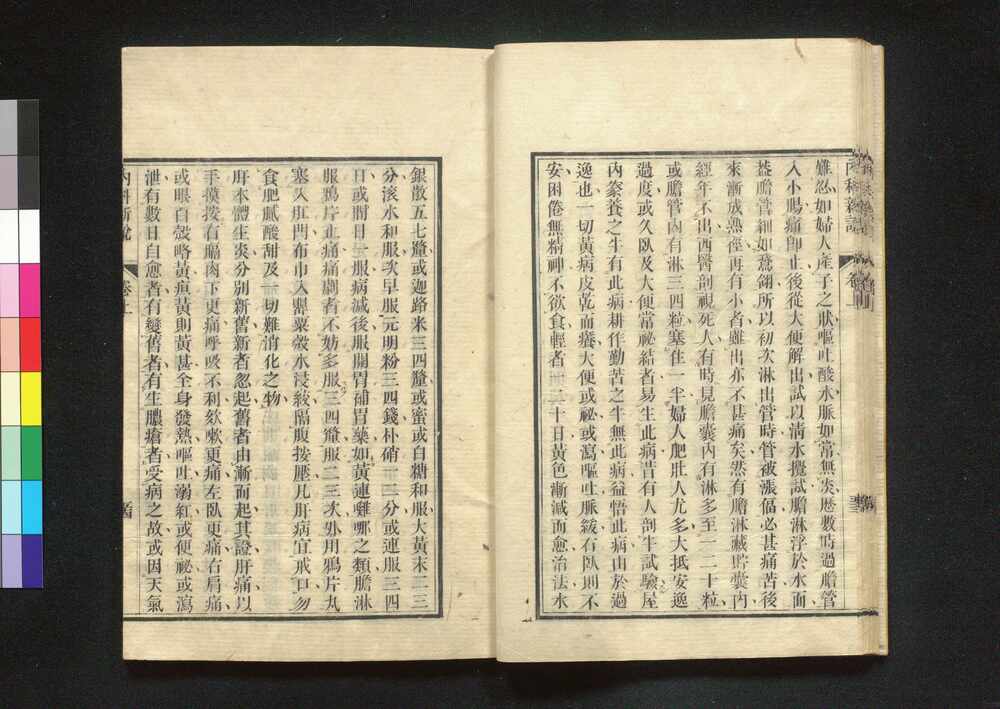 難忍如婦人產子之狀嘔吐酸水脈如常無炎歷數時過膽管
入小腸痛卽止後從大便解出試以清水攪試膽淋浮於水面
葢膽管細如鵞翎所以初次淋出管時管被漲偪必甚痛苦後
來漸成熟徑再有小者雖出亦不甚痛矣然有膽淋藏貯囊內
經年不出西醫剖視死人有時見膽囊內有淋多至一二十粒
或膽管內有淋三四粒塞住一半婦人肥壯人尤多大抵安逸
過度或久臥及大便常祕結者易生此病昔有人剖牛試驗屋
內豢養之牛有此病耕作勤苦之牛無此病益悟此病由於過
逸也一切黃病皮乾而癢大便或祕或瀉嘔吐脈緩右臥則不
安困倦無精神不欲食輕者二三十日黃色漸減而愈治法水
銀散五七釐或迦路米三四釐或蜜或白糖和服大黃末二三
分滾水和服次早服元明粉三四錢朴硝二三分或連服三四
日或間日一服病減後服開胃補胃藥如黃連雞哪之類膽淋
服鴉片止痛痛劇者不妨多服三四釐服二三次外用鴉片丸
塞入肛門布巾入罌粟殼水浸絞隔腹按壓凡肝病宜戒口勿
食肥膩酸甜及一切難消化之物
肝本體生炎分別新舊新者忽起舊者由漸而起其證肝痛以
手摸按右脇肉下更痛呼吸不利欬嗽更痛左臥更痛右肩痛
或眼白殼略黃瘨黃則黃甚全身發熱嘔吐溺紅或便祕或瀉
泄有數日自愈者有變舊者有生膿瘡者受病之故或因天氣
內科新說
卷上